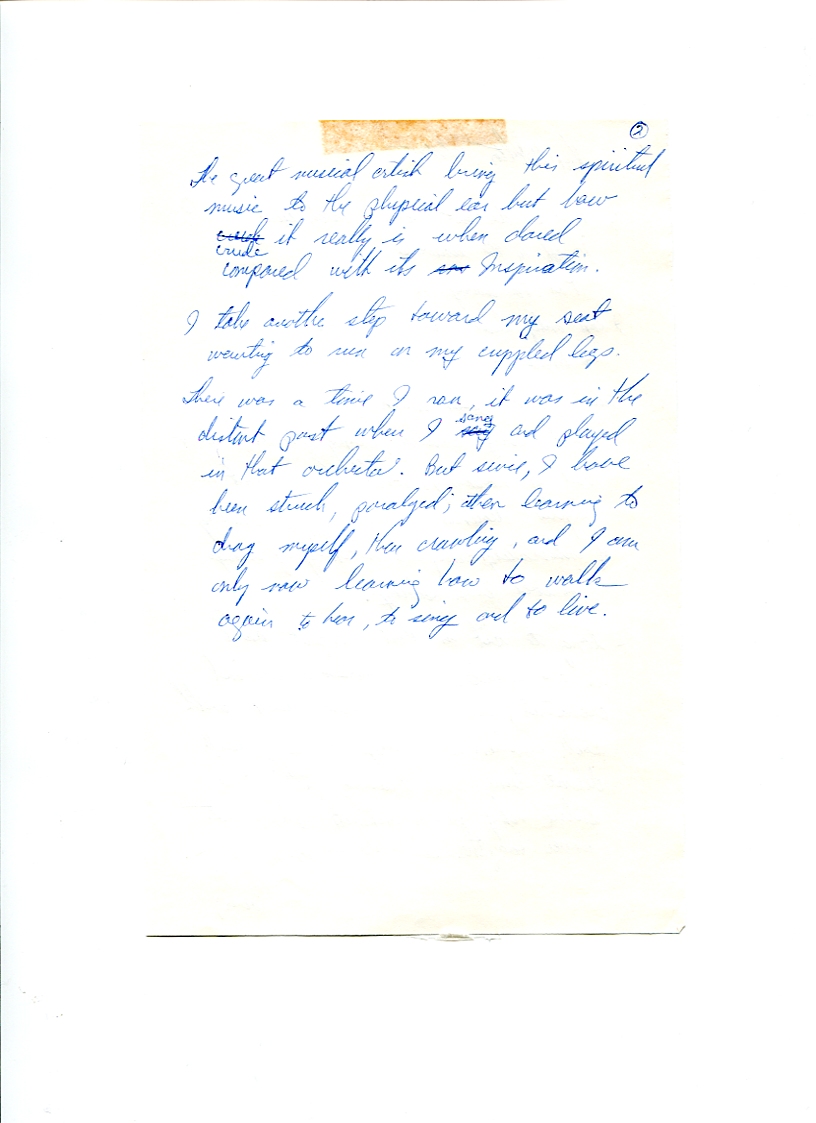 ②
The great musical artist bring this spiritual
music to the physical ear but how
crude it really is when
compared with its Inspiration.
I take another step toward my seat
wanting to run on my crippled legs.
There was a time I ran, it was in the
distant past when I sang and played
in that orchestra. But since, I have
been struck, paralyzed; then learning to
drag myself, then crawling, and I am
only now learning how to walk
again to hear, to sing and to live.